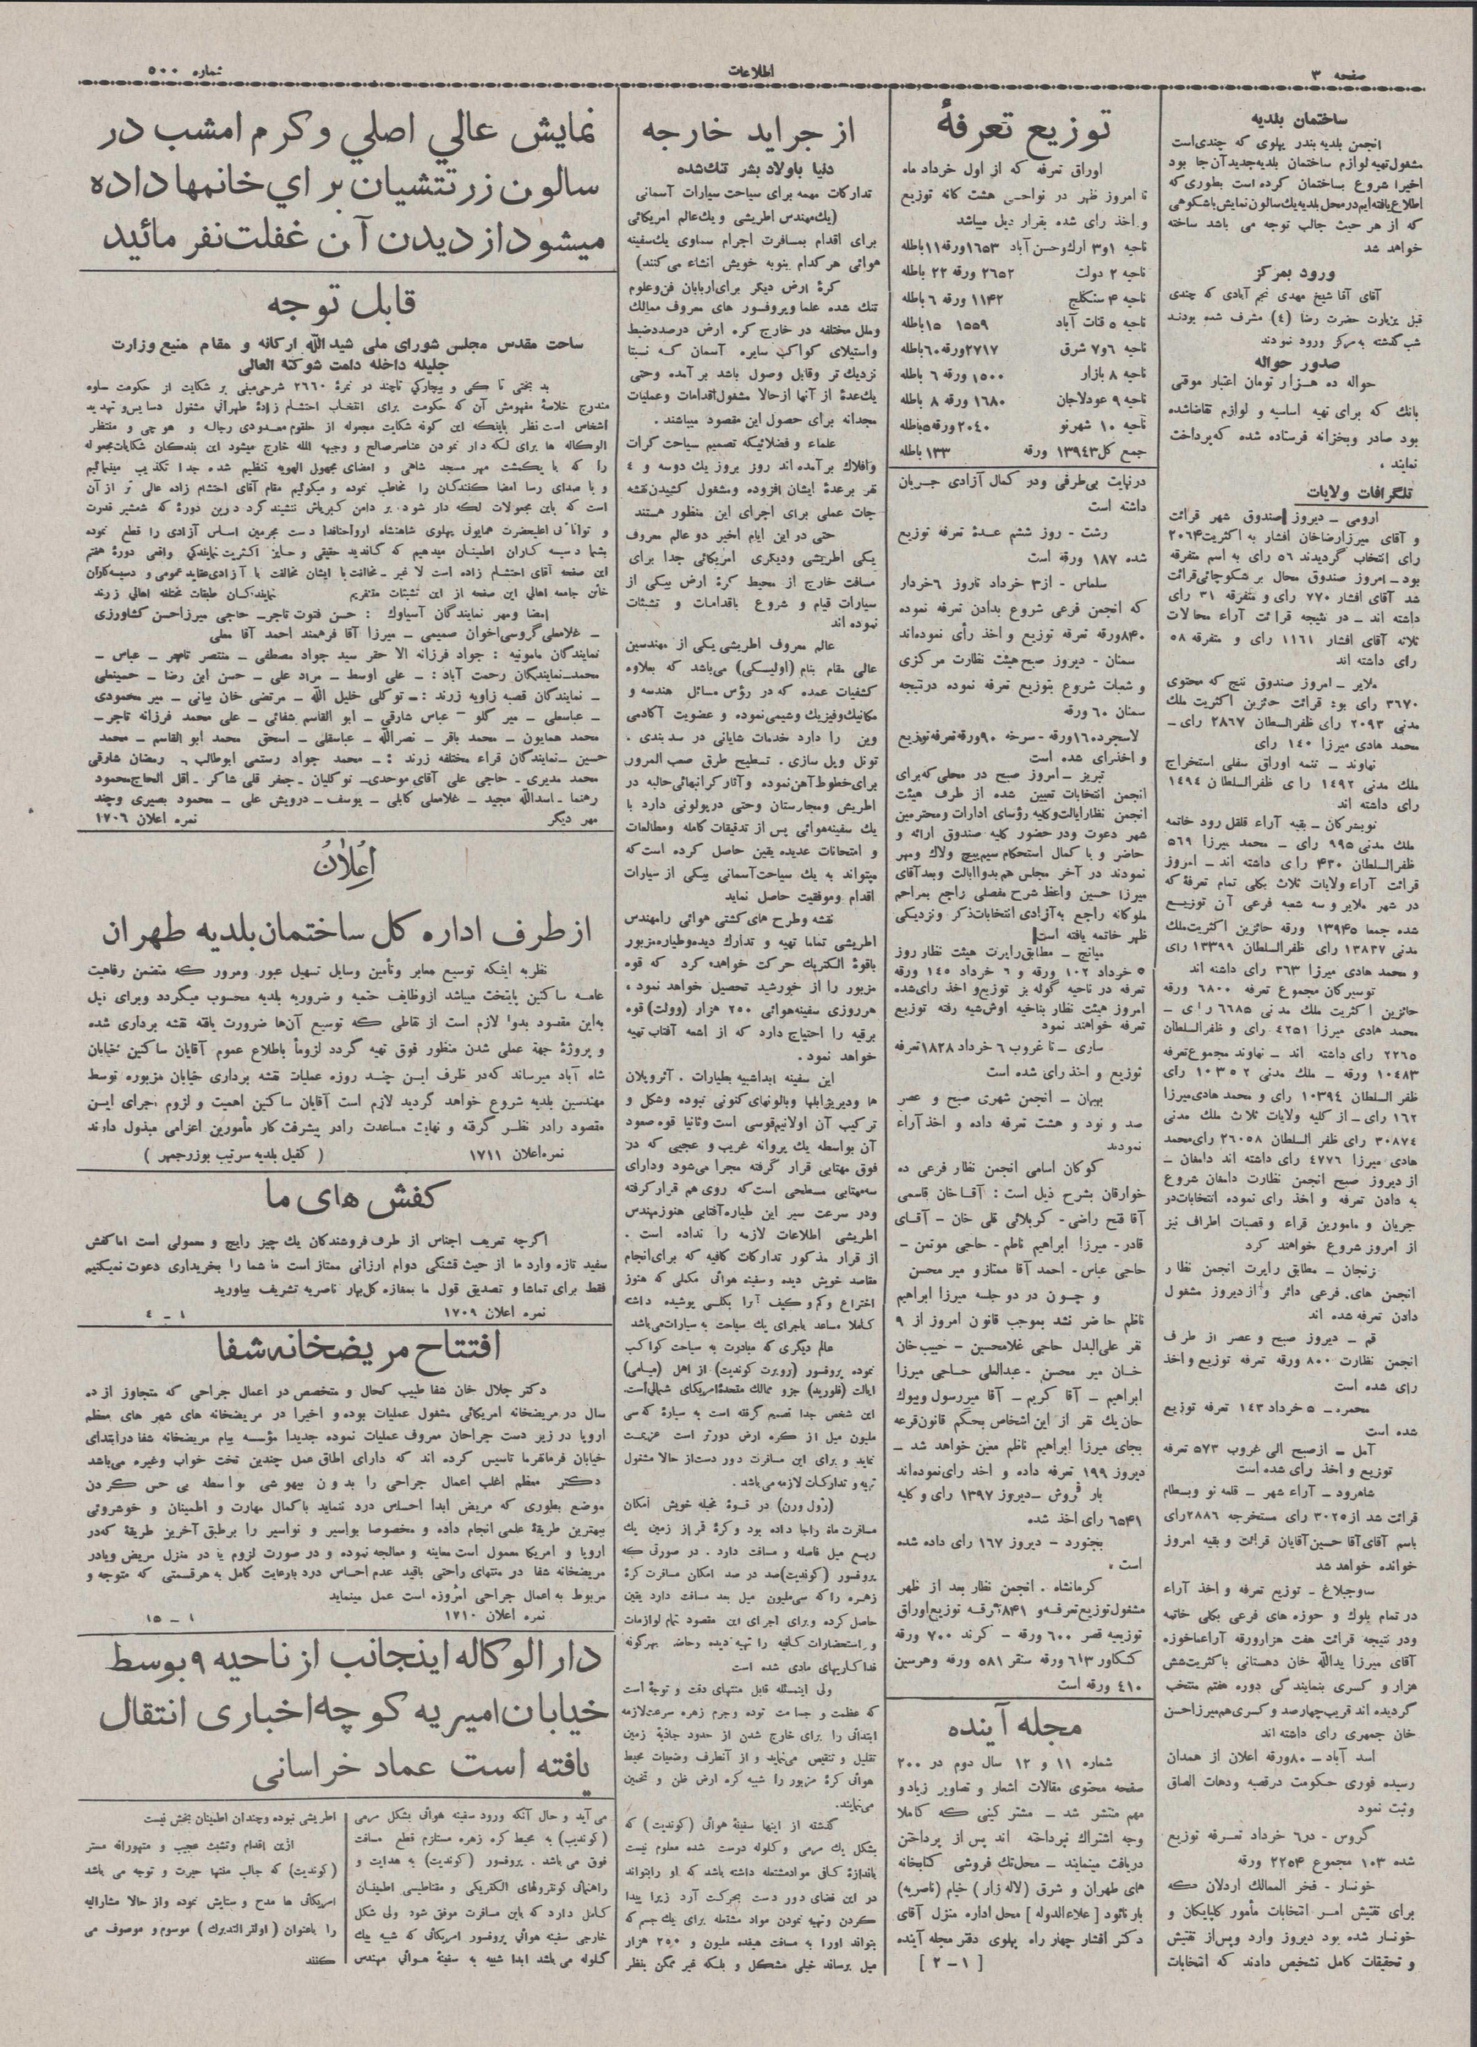 صفحه ۳
اطلاعات
شماره ۵۰۰
ساختمان بلدیه
انجمن بلدیه بندر پهلوی که چندی است
مشغول تهیه لوازم ساختمان بلدیه جدید آن جا بود
اخیرا شروع بساختمان کرده است بطوری که
اطلاع یافته‌ایم در محل بلدیه یك سالون نمایش باشکوهی
که از هر حیث جالب توجه می باشد ساخته
خواهد شد
ورود بمرکز
آقای آقا شیخ مهدی نجم آبادی که چندی
قبل بزیارت حضرت رضا (ع) مشرف شده بودند
شب گذشته بمرکز ورود نمودند
صدور حواله
حواله ده هزار تومان اعتبار موقتی
بانك که برای تهیه اساسیه و لوازم تقاضاشده
بود صادر وبخزانه فرستاده شده که پرداخت
نمایند .
تلگرافات ولایات
ارومی - دیروز صندوق شهر قرائت
و آقای میرزارضاخان افشار به اکثریت ۲۰۶۴
رای انتخاب گردیدند ۵۶ رای به اسم متفرقه
بود - امروز صندوق محال بر شکوجائی قرائت
شد آقای افشار ۷۷۰ رای و متفرقه ۳۱ رای
داشته اند - در نتیجه قرائت آراء محالات
ثلاثه آقای افشار ۱۱۶۱ رای و متفرقه ۵۸
رای داشته اند
ملایر - امروز صندوق ننج که محتوی
۳۶۷۰ رای بود قرائت حائزین اکثریت ملك
مدنی ۲۰۹۳ رای ظفرالسلطان ۲۸۶۷ رای -
محمد هادی میرزا ۱۴۰ رای
نهاوند - تتمه اوراق سفلی استخراج
ملك مدنی ۱۴۹۲ رای ظفرالسلطان ۱۴۹۴
رای داشته اند
تویسرکان - بقیه آراء قلقل رود خاتمه
ملك مدنی ۹۹۵ رای - محمد میرزا ۵۶۹
ظفرالسلطان ۴۳۰ رای داشته اند - امروز
قرائت آراء ولایات ثلاث بکلی تمام تعرفه که
در شهر ملایر و سه شعبه فرعی آن توزیع
شده جمعا ۱۳۹۴۵ ورقه حائزین اکثریت ملك
مدنی ۱۳۸۳۷ رای ظفرالسلطان ۱۳۳۹۹ رای
و محمد هادی میرزا ۳۶۳ رای داشته اند
تویسرکان مجموع تعرفه ۶۸۰۰ ورقه
حائزین اکثریت ملك مدنی ۶۶۸۵ رای -
محمد هادی میرزا ۴۲۵۱ رای و ظفرالسلطان
۲۲۶۵ رای داشته اند - نهاوند مجموع تعرفه
۱۰۴۸۳ ورقه - ملك مدنی ۱۰۳۵۲ رای
ظفر السلطان ۱۰۳۹۴ رای و محمد هادی میرزا
۱۶۲ رای - از کلیه ولایات ثلاث ملك مدنی
۳۰۸۷۴ رای ظفر السلطان ۲۶۰۵۸ رای محمد
هادی میرزا ۴۷۷۶ رای داشته اند دامغان -
از دیروز صبح انجمن نظارت دامغان شروع
به دادن تعرفه و اخذ رای نموده انتخابات در
جریان و مامورین قراء و قصبات اطراف نیز
از امروز شروع خواهند کرد
زنجان - مطابق راپرت انجمن نظار
انجمن های فرعی دائر و از دیروز مشغول
دادن تعرفه شده اند
قم - دیروز صبح و عصر از طرف
انجمن نظارت ۸۰۰ ورقه تعرفه توزیع و اخذ
رای شده است
محمره - ۵ خرداد ۱۴۳ تعرفه توزیع
شده است
آمل - از صبح الی غروب ۵۷۳ تعرفه
توزیع و اخذ رای شده است
شاهرود - آراء شهر - قلعه نو وبسطام
قرائت شد از ۳۰۲۵ رای مستخرجه ۲۸۸۶ رای
باسم آقای آقا حسین آقایان قرائت و بقیه امروز
خوانده خواهد شد
ساوجبلاغ - توزیع تعرفه و اخذ آراء
در تمام بلوك و حوزه های فرعی بکلی خاتمه
ودر نتیجه قرائت هفت هزار ورقه آراء ماخوذه
آقای میرزا یدالله خان دهستانی با کثریت شش
هزار و کسری بنمایندگی دوره هفتم منتخب
گردیده اند قریب چهارصد و کسری هم میرزا حسن
خان جمهری رای داشته اند
اسد آباد - ۸۰ ورقه اعلان از همدان
رسیده فوری حکومت در قصبه ودهات الصاق
وثبت نمود
گروس - در ۶ خرداد تعرفه توزیع
شده ۱۰۳ مجموع ۲۲۵۴ ورقه
خونسار - فخر الممالك اردلان که
برای تفتیش امر انتخابات مأمور گلپایگان و
خونسار شده بود دیروز وارد وپس از تفتیش
و تحقیقات کامل تشخیص دادند که انتخابات
توزیع تعرفهٔ
اوراق تعرفه که از اول خرداد ماه
تا امروز ظهر در نواحی هشت گانه توزیع
و اخذ رای شده بقرار ذیل میباشد
ناحیه ۱و۳ ارك وحسن آباد ۱۶۵۳ ورقه ۱۱ باطله
ناحیه ۲ دولت ۲۶۵۲ ورقه ۲۲ باطله
ناحیه ۴ سنگلج ۱۱۴۲ ورقه ۶ باطله
ناحیه ۵ قنات آباد ۱۵۵۹ ۱۵ باطله
ناحیه ۶و۷ شرق ۲۷۱۷ ورقه ۶۰ باطله
ناحیه ۸ بازار ۱۵۰۰ ورقه ۶ باطله
ناحیه ۹ عودلاجان ۱۶۸۰ ورقه ۸ باطله
ناحیه ۱۰ شهرنو ۲۰۴۰ ورقه ۵ باطله
جمع کل ۱۳۹۴۳ ورقه ۱۳۳ باطله
درنهایت بی‌طرفی ودر کمال آزادی جریان
داشته است
رشت - روز ششم عدهٔ تعرفه توزیع
شده ۱۸۷ ورقه است
سلماس - از ۳ خرداد تاروز ۶ خرداد
که انجمن فرعی شروع بدادن تعرفه نموده
۸۴۰ ورقه تعرفه توزیع و اخذ رأی نموده‌اند
سمنان - دیروز صبح هیئت نظارت مرکزی
و شعبات شروع بتوزیع تعرفه نموده درنتیجه
سمنان ۶۰ ورقه
لاسجرد ۱۶۰ ورقه - سرخه ۹۰ ورقه تعرفه توزیع
و اخذ رای شده است
تبریز - امروز صبح در محلی که برای
انجمن انتخابات تعیین شده از طرف هیئت
انجمن نظار ایالت وکلیه رؤسای ادارات ومحترمین
شهر دعوت ودر حضور کلیه صندوق ارائه و
حاضر و با کمال استحکام سیم پیچ ولاك ومهر
نمودند در آخر مجلس هم بدوا ایالت وبعد آقای
میرزا حسین واعظ شرح مفصلی راجع بمراحم
ملوکانه راجع به آزادی انتخابات ذکر ونزدیکی
ظهر خاتمه یافته است
میانج - مطابق راپرت هیئت نظار روز
۵ خرداد ۱۰۲ ورقه و ۶ خرداد ۱۴۵ ورقه
تعرفه در ناحیه گوله بز توزیع و اخذ رای شده
امروز هیئت نظار بناحیه اوش شیه رفته توزیع
تعرفه خواهند نمود
ساری - تا غروب ۶ خرداد ۱۸۲۸ تعرفه
توزیع و اخذ رای شده است
بهبهان - انجمن شهری صبح و عصر
صد و نود و هشت تعرفه داده و اخذ آراء
نمودند
کوکان اسامی انجمن نظار فرعی ده
خوارقان بشرح ذیل است : آقاخان قاسمی
آقا فتح راضی - کربلائی قلی خان - آقای
قادر - میرزا ابراهیم ناظم - حاجی موتمن -
حاجی عباس - احمد آقا ممتاز و میر محسن
و چون در دو جلسه میرزا ابراهیم
ناظم حاضر نشد بموجب قانون امروز از ۹
نفر علی‌البدل حاجی غلامحسین - حبیب خان
خان میر محسن - عبدالعلی حاجی میرزا
ابراهیم - آقا کریم - آقا میررسول وبیوك
خان یك نفر از این اشخاص بحکم قانون قرعه
بجای میرزا ابراهیم ناظم معین خواهد شد -
دیروز ۱۹۹ تعرفه داده و اخذ رای نموده‌اند
بار فروش - دیروز ۱۳۹۷ رای و کلیه
۶۵۴۱ رای اخذ شده
بجنورد - دیروز ۱۶۷ رای داده شده
است .
کرمانشاه . انجمن نظار بعد از ظهر
مشغول توزیع تعرفه و ۸۴۱ ورقه توزیع اوراق
توزیعیه قصر ۶۰۰ ورقه - کرند ۷۰۰ ورقه
کنگاور ۶۱۳ ورقه سنقر ۵۸۱ ورقه وهرسین
۴۱۰ ورقه است
مجله آینده
شماره ۱۱ و ۱۲ سال دوم در ۲۰۰
صفحه محتوی مقالات اشعار و تصاویر زیاد و
مهم منتشر شد - مشتر کینی که کاملا
وجه اشتراك نپرداخته اند پس از پرداختن
دریافت مینمایند - محل تك فروشی کتابخانه
های طهران و شرق (لاله زار) خیام (ناصریه)
بارنائود [علاءالدوله] محل اداره منزل آقای
دکتر افشار چهار راه پهلوی دفتر مجله آینده
[ ۱ - ۲ ]
از جراید خارجه
دنیا باولاد بشر تنك شده
تدارکات مهمه برای سیاحت سیارات آسمانی
(یك مهندس اطریشی و یك عالم امریکائی
برای اقدام بمسافرت اجرام سماوی یك سفینه
هوائی هر کدام بنوبه خویش انشاء می کنند)
کرهٔ ارض دیگر برای اربابان فن و علوم
تنك شده علما و پروفسور های معروف ممالك
وملل مختلفه در خارج کره ارض درصدد ضبط
واستیلای کواکب سایره آسمان که نسبتا
نزدیك تر وقابل وصول باشد بر آمده وحتی
یك عدهٔ از آنها از حالا مشغول اقدامات وعملیات
مجدانه برای حصول این مقصود میباشند .
علماء و فضلائیکه تصمیم سیاحت کرات
وافلاك بر آمده اند روز بروز یك دوسه و ٤
نفر بر عدهٔ ایشان افزوده ومشغول کشیدن نقشه
جات عملی برای اجرای این منظور هستند
حتی در این ایام اخیر دو عالم معروف
یکی اطریشی ودیگری امریکائی جدا برای
مسافت خارج از محیط کرهٔ ارض بیکی از
سیارات قیام و شروع باقدامات و تشبثات
نموده اند
عالم معروف اطریشی یکی از مهندسین
عالی مقام بنام (اولیسکی) می‌باشد که بعلاوه
کشفیات عمده که در رؤس مسائل هندسه و
مکانیك وفیزیك وشیمی نموده و عضویت آکادمی
وین را دارد خدمات شایانی در سد بندی .
تونل وپل سازی . تسطیح طرق صعب المرور
برای خطوط آهن نموده و آثار گرانبهائی حالیه در
اطریش ومجارستان وحتی درپولونی دارد با
یك سفینه هوائی پس از تدقیقات کامله ومطالعات
و امتحانات عدیده یقین حاصل کرده است که
میتواند به یك سیاحت آسمانی بیکی از سیارات
اقدام وموفقیت حاصل نماید
نقشه وطرح های کشتی هوائی رامهندس
اطریشی تماما تهیه و تدارك دیده وطیاره مزبور
باقوهٔ الکتریك حرکت خواهد کرد که قوه
مزبور را از خورشید تحصیل خواهد نمود .
هرروزی سفینه هوائی ۲۵۰ هزار (وولت) قوه
برقیه را احتیاج دارد که از اشعه آفتاب تهیه
خواهد نمود .
این سفینه ابداشبیه بطیارات . آئروپلان
ها ودیریژابلها وبالونهای کنونی نبوده وشکل و
ترکیب آن اولانیم قوسی است وثانیا قوه صعود
آن بواسطه یك پروانه غریب و عجیبی که در
فوق مهتابی قرار گرفته مجرا می‌شود ودارای
سه مهتابی مسطحی است که روی هم قرار گرفته
ودر سرعت سیر این طیاره آفتابی هنوز مهندس
اطریشی اطلاعات لازمه را نداده است .
از قرار مذکور تدارکات کافیه که برای انجام
مقاصد خویش دیده وسفینه هوائی مکملی که هنوز
اختراع وکم و کیف آنرا بکلی پوشیده داشته
کاملا مساعد باجرای یك سیاحت به سیارات می‌باشد
عالم دیگری که مبادرت به سیاحت کواکب
نموده پروفسور (روبرت کوندیت) از اهل (میامی)
ایالت (فلورید) جزو ممالك متحدهٔ امریکای شمالی است.
این شخص جدا تصمیم گرفته است به سیارهٔ که سی
ملیون میل از کره ارض دورتر است عزیمت
نماید و برای این مسافرت دور دست از حالا مشغول
تهیه و تدارکات لازمه می‌باشد .
(ژول ورن) در قوهٔ مخیله خویش امکان
مسافرت ماه راجا داده بود وکرهٔ قمر از زمین یك
ربع میل فاصله و مسافت دارد . در صورتی که
پروفسور (کوندیت) صد در صد امکان مسافرت کرهٔ
زهره را که سی ملیون میل بعد مسافت دارد یقین
حاصل کرده وبرای اجرای این مقصود تمام لوازمات
و استحضارات کافیه را تهیه دیده وحاضر بهرگونه
فداکاریهای مادی شده است
ولی اینمسئله قابل منتهای دقت و توجه است
که عظمت و جسامت توده وجرم زهره سرعت لازمه
ابتدائی را برای خارج شدن از حدود جاذبهٔ زمین
تقلیل و تنقیص می‌نماید و از آنطرف وضعیات محیط
هوائی کرهٔ مزبور را شبیه کره ارض ظن و تخمین
می‌نمایند .
گذشته از اینها سفینهٔ هوائی (کوندیت) که
بشکل یك مرمی و گلوله درست شده معلوم نیست
باندازهٔ کافی مواد مشتعله داشته باشد که او را بتواند
در این فضای دور دست بحرکت آرد زیرا پیدا
کردن وتهیه نمودن مواد مشتعله برای یك جسم که
بتواند اورا به مسافت هیفده ملیون و ۲۵۰ هزار
میل برساند خیلی مشکل و بلکه غیر ممکن بنظر
نمایش عالي اصلي و کرم امشب در
سالون زرتتشیان براي خانمها داده
میشود از دیدن آن غفلت نفر مائید
قابل توجه
ساحت مقدس مجلس شورای ملی شید الله ارکانه و مقام منیع وزارت
جلیله داخله دامت شوکته العالی
بد بختی تا کی و بیچارگی تاچند در نمرهٔ ۲۶۶۰ شرحی مبنی بر شکایت از حکومت ساوه
مندرج خلاصهٔ مفهومش آن که حکومت برای انتخاب احتشام زادهٔ طهرانی مشغول دسایس و تهدید
اشخاص است نظر باینکه این گونه شکایت مجعوله از حلقوم معدودی رجاله و هوچی و منتظر
الوکاله ها برای لکه دار نمودن عناصر صالح و وجیهه الله خارج میشود این بندگان شکایات مجعوله
را که با یکشت مهر مسجد شاهی و امضای مجهول الهویه تنظیم شده جدا تکذیب مینمائیم
و با صدای رسا امضا کنندگان را مخاطب نموده و میگوئیم مقام آقای احتشام زاده عالی تر از آن
است که باین مجعولات لکه دار شود . بر دامن کبریاش ننشیند گرد درین دورهٔ که شمشیر قدرت
و توانائی اعلیحضرت همایونی پهلوی شاهنشاه ارواحنافدا دست مجرمین اساس آزادی را قطع نموده
بشما دسیسه کاران اطمینان میدهیم که کاندید حقیقی و حایز اکثریت نمایندگی واقعی دورهٔ هفتم
این صفحه آقای احتشام زاده است لا غیر - مخالفت با ایشان مخالفت با آزادی عقاید عمومی و دسیسه کاران
خائن جامعه اهالی این صفحه از این تشبثات متنفریم نمایندگان طبقات مختلفه اهالی زرند
امضا ومهر نمایندگان آسیاوك : حسن فتوت تاجر - حاجی میرزا حسن کشاورزی
- غلامعلی گروسی اخوان صمیمی - میرزا آقا فرهمند احمد آقا معلی
نمایندگان مامونیه : جواد فرزانه الا حقر سید جواد مصطفی - منتصر تاجر - عباس -
محمد - نمایندگان رحمت آباد : - علی اوسط - مراد علی - حسن ابن رضا - حسینعلی
- نمایندگان قصبه زاویه زرند : - توکلی خلیل الله - مرتضی خان بیانی - میر محمودی
- عباسعلی - میر گلو - عباس شارقی - ابو القاسم شفائی - علی محمد فرزانه تاجر -
محمد همایون - محمد باقر - نصرالله - عباسقلی - اسحق محمد ابو القاسم - محمد
حسین - نمایندگان قراء مختلفه زرند : - محمد جواد رستمی ابوطالب - رمضان شارقی
محمد مدیری - حاجی علی آقای موحدی - نوکلیان - جعفر قلی شاکر - اقل الحاج محمود
رهنما - اسدالله مجید - غلامعلی کابلی - یوسف - درویش علی - محمود بصیری وچند
مهر دیگر نمره اعلان ۱۷۰۶
اعلان
از طرف اداره کل ساختمان بلدیه طهران
نظربه اینکه توسیع معابر وتأمین وسایل تسهیل عبور ومرور که متضمن رفاهیت
عامه ساکنین پایتخت میباشد ازوظایف حتمیه و ضروریه بلدیه محسوب میگردد وبرای نیل
به‌این مقصود بدوا لازم است از نقاطی که توسیع آن‌ها ضرورت یافه نقشه برداری شده
و پروژهٔ جهة عملی شدن منظور فوق تهیه گردد لزوماً باطلاع عموم آقایان ساکنین خیابان
شاه آباد میرساند که در ظرف این چند روزه عملیات نقشه برداری خیابان مزبوره توسط
مهندسین بلدیه شروع خواهد گردید لازم است آقایان ساکنین اهمیت و لزوم اجرای این
مقصود رادر نظر گرفته و نهایت مساعدت رادر پیشرفت کار مأمورین اعزامی مبذول دارند
نمره اعلان ۱۷۱۱ ( کفیل بلدیه سرتیب بوزرجمهر )
کفش های ما
اگرچه تعریف اجناس از طرف فروشندگان یك چیز رایج و معمولی است اما کفش
سفید تازه وارد ما از حیث قشنگی دوام ارزانی ممتاز است ما شما را بخریداری دعوت نمیکنیم
فقط برای تماشا و تصدیق قول ما بمغازه گل بهار ناصریه تشریف بیاورید
نمره اعلان ۱۷۰۹ ۱ - ٤
افتتاح مریضخانه شفا
دکتر جلال خان شفا طبیب کحال و متخصص در اعمال جراحی که متجاوز از ده
سال در مریضخانه امریکائی مشغول عملیات بوده و اخیرا در مریضخانه های شهر های معظم
اروپا در زیر دست جراحان معروف عملیات نموده جدیدا مؤسسه بنام مریضخانه شفا درابتدای
خیابان فرمانفرما تاسیس کرده اند که دارای اطاق عمل چندین تخت خواب وغیره می‌باشد
دکتر معظم اغلب اعمال جراحی را بدون بیهوشی بواسطه بی حس کردن
موضع بطوری که مریض ابدا احساس درد ننماید باکمال مهارت و اطمینان و خوشروئی
ببهترین طریقهٔ علمی انجام داده و مخصوصا بواسیر و نواسیر را برطبق آخرین طریقهٔ که در
اروپا و امریکا معمول است معاینه و معالجه نموده و در صورت لزوم یا در منزل مریض ویادر
مریضخانه شفا در منتهای راحتی باقید عدم احساس درد بارعایت کامل به هر قسمتی که متوجه و
مربوط به اعمال جراحی امروزه است عمل مینماید
نمره اعلان ۱۷۱۰ ۱ - ۱۵
دار الوکاله اینجانب از ناحیه ۹ بوسط
خیابان امیریه کوچه اخباری انتقال
یافته است عماد خراسانی
می آید و حال آنکه ورود سفینه هوائی بشکل مرمی
(کوندیت) به محیط کره زهره مستلزم قطع مسافت
فوق می باشد . پروفسور (کوندیت) به هدایت و
راهنمائی کونترولهای الکتریکی و مقناطیسی اطمینان
کامل دارد که باین مسافرت موفق شود ولی شکل
خارجی سفینه هوائی پروفسور امریکائی که شبیه بیك
گلوله می باشد ابدا شبیه به سفینهٔ هوائی مهندس
اطریشی نبوده وچندان اطمینان بخش نیست
ازین اقدام وتشبث عجیب و متهورانه مستر
(کوندیت) که جالب منتها حیرت و توجه می باشد
امریکائی ها مدح و ستایش نموده واز حالا مشارالیه
را باعنوان ( اولتر التدبرك ) موسوم و موصوف می
کنند